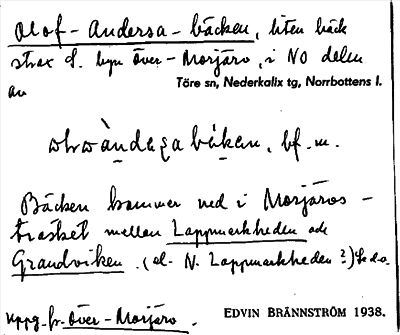 Olof-Andersa-bäcken, liten bäck
strax S. byn Över-Morjärv, i NO delen
av
Töre sn, Nederkalix tg, Norrbottens l.
bf. m.
Bäcken kommer ned i Morjärvs-
träsket mellan Lappmarkheden och
Grandviken. (el. N. Lappmarkheden?)
Uppg. fr. Över-Morjärv.
EDVIN BRÄNNSTRÖM 1938.